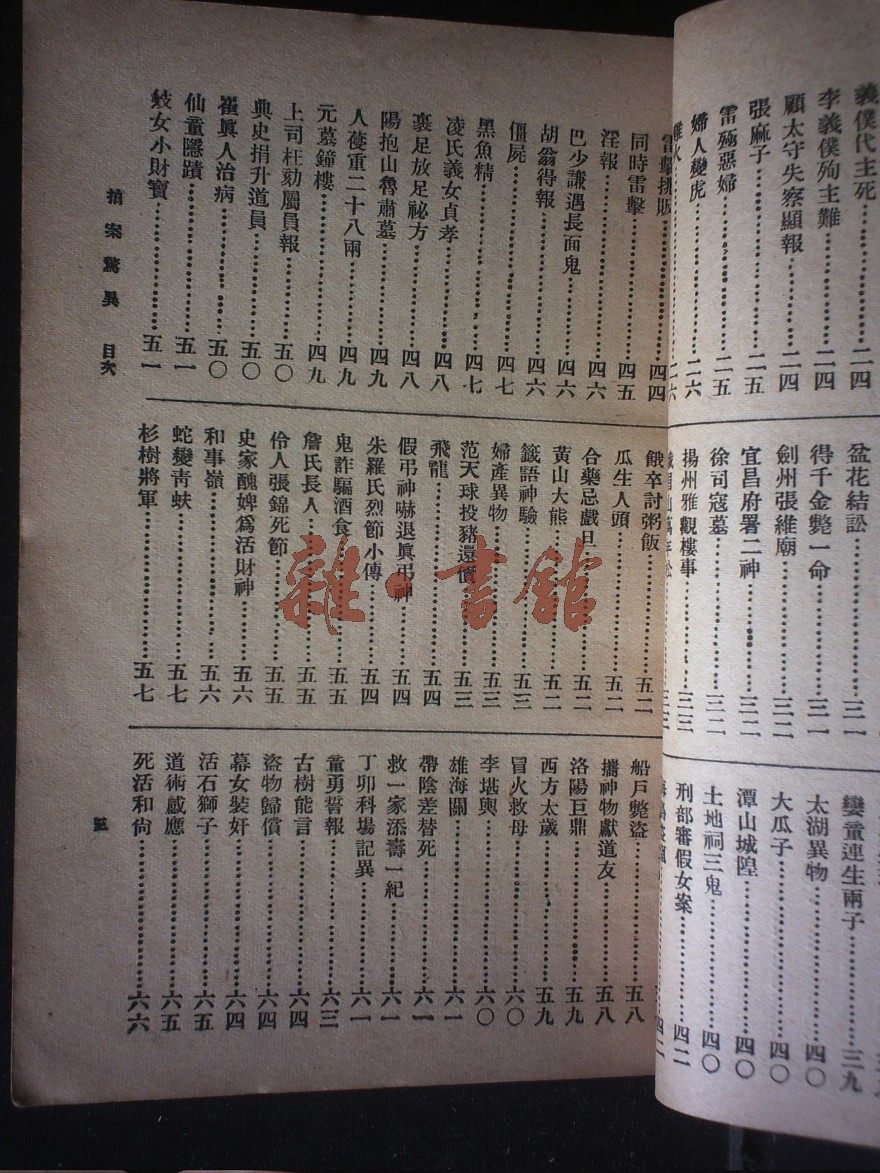 義僕代主死…………二四
李義僕殉主難…………二四
顧太守失察顯報…………二四
張麻子…………二五
雷殛惡婦…………二五
婦人變虎…………二六
盆花結訟…………三一
得千金斃一命…………三一
劍州張維廟…………三二
宜昌府署二神…………三二
徐司寇墓…………三二
揚州雅觀樓事…………三三
孌童連生兩子…………三九
太湖異物…………四〇
大瓜子…………四〇
潭山城隍…………四〇
土地祠三鬼…………四〇
刑部審假女案…………四二
雷擊挑販…………四四
同時雷擊…………四五
淫報…………四六
巴少謙遇長面鬼…………四六
胡翁得報…………四六
僵屍…………四七
黑魚精…………四七
凌氏義女貞孝…………四八
裹足放足祕方…………四八
陽抱山魯肅墓…………四九
人蓡重二十八兩…………四九
元墓鐘樓…………四九
上司枉劾屬員報…………五〇
典史捐升道員…………五〇
崔眞人治病…………五〇
仙童隱蹟…………五一
妓女小財寶…………五一
餓卒討粥飯…………五二
瓜生人頭…………五二
合藥忌戲旦…………五二
黃山大熊…………五二
籤語神驗…………五三
婦產異物…………五三
范天球投豬還價…………五三
飛龍…………五四
假弔神嚇退眞弔神…………五四
朱羅氏烈節小傳…………五四
鬼詐騙酒食…………五五
詹氏長人…………五五
伶人張錦死節…………五五
史家醜婢爲活財神…………五六
和事嶺…………五六
蛇變靑蚨…………五七
杉樹將軍…………五七
船戶斃盜…………五八
攜神物獻道友…………五八
洛陽巨鼎…………五九
西方太歲…………五九
冒火救母…………六〇
李堪輿…………六〇
雄海關…………六一
帶陰差替死…………六一
救一家添壽一紀…………六一
丁卯科場記異…………六一
童勇誓報…………六三
古樹能言…………六四
盜物歸償…………六四
幕女裝奸…………六四
活石獅子…………六五
道術感應…………六五
死活和尙…………六六
拍案驚異 目次
三
雜·書館